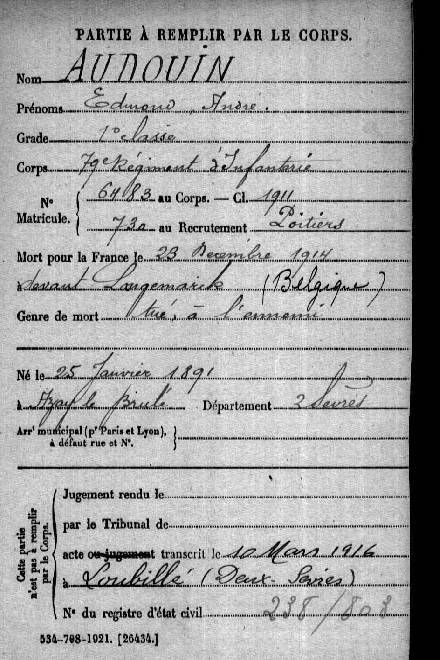 PARTIE À REMPLIR PAR LE CORPS.
Nom AUDOUIN
Prénoms Edmond, André.
Grade 1e classe
Corps 79e Régiment d'Infanterie
N° Matricule. { 6483 au Corps. — Cl. 1911
730 au Recrutement Poitiers
Mort pour la France le 23 Décembre 1914
à devant Langemarck (Belgique)
Genre de mort tué à l'ennemi
Né le 25 Janvier 1891
à Azay le Brulé Département 2 Sèvres
Arrt municipal (pr Paris et Lyon), à défaut rue et N°. }
Cette partie n'est pas à remplir par le Corps.
Jugement rendu le
par le Tribunal de
acte ou jugement transcrit le 10 Mars 1916
à Loubillé (Deux-Sèvres)
N° du registre d'état civil 238/808
534-708-1921. [26434.]